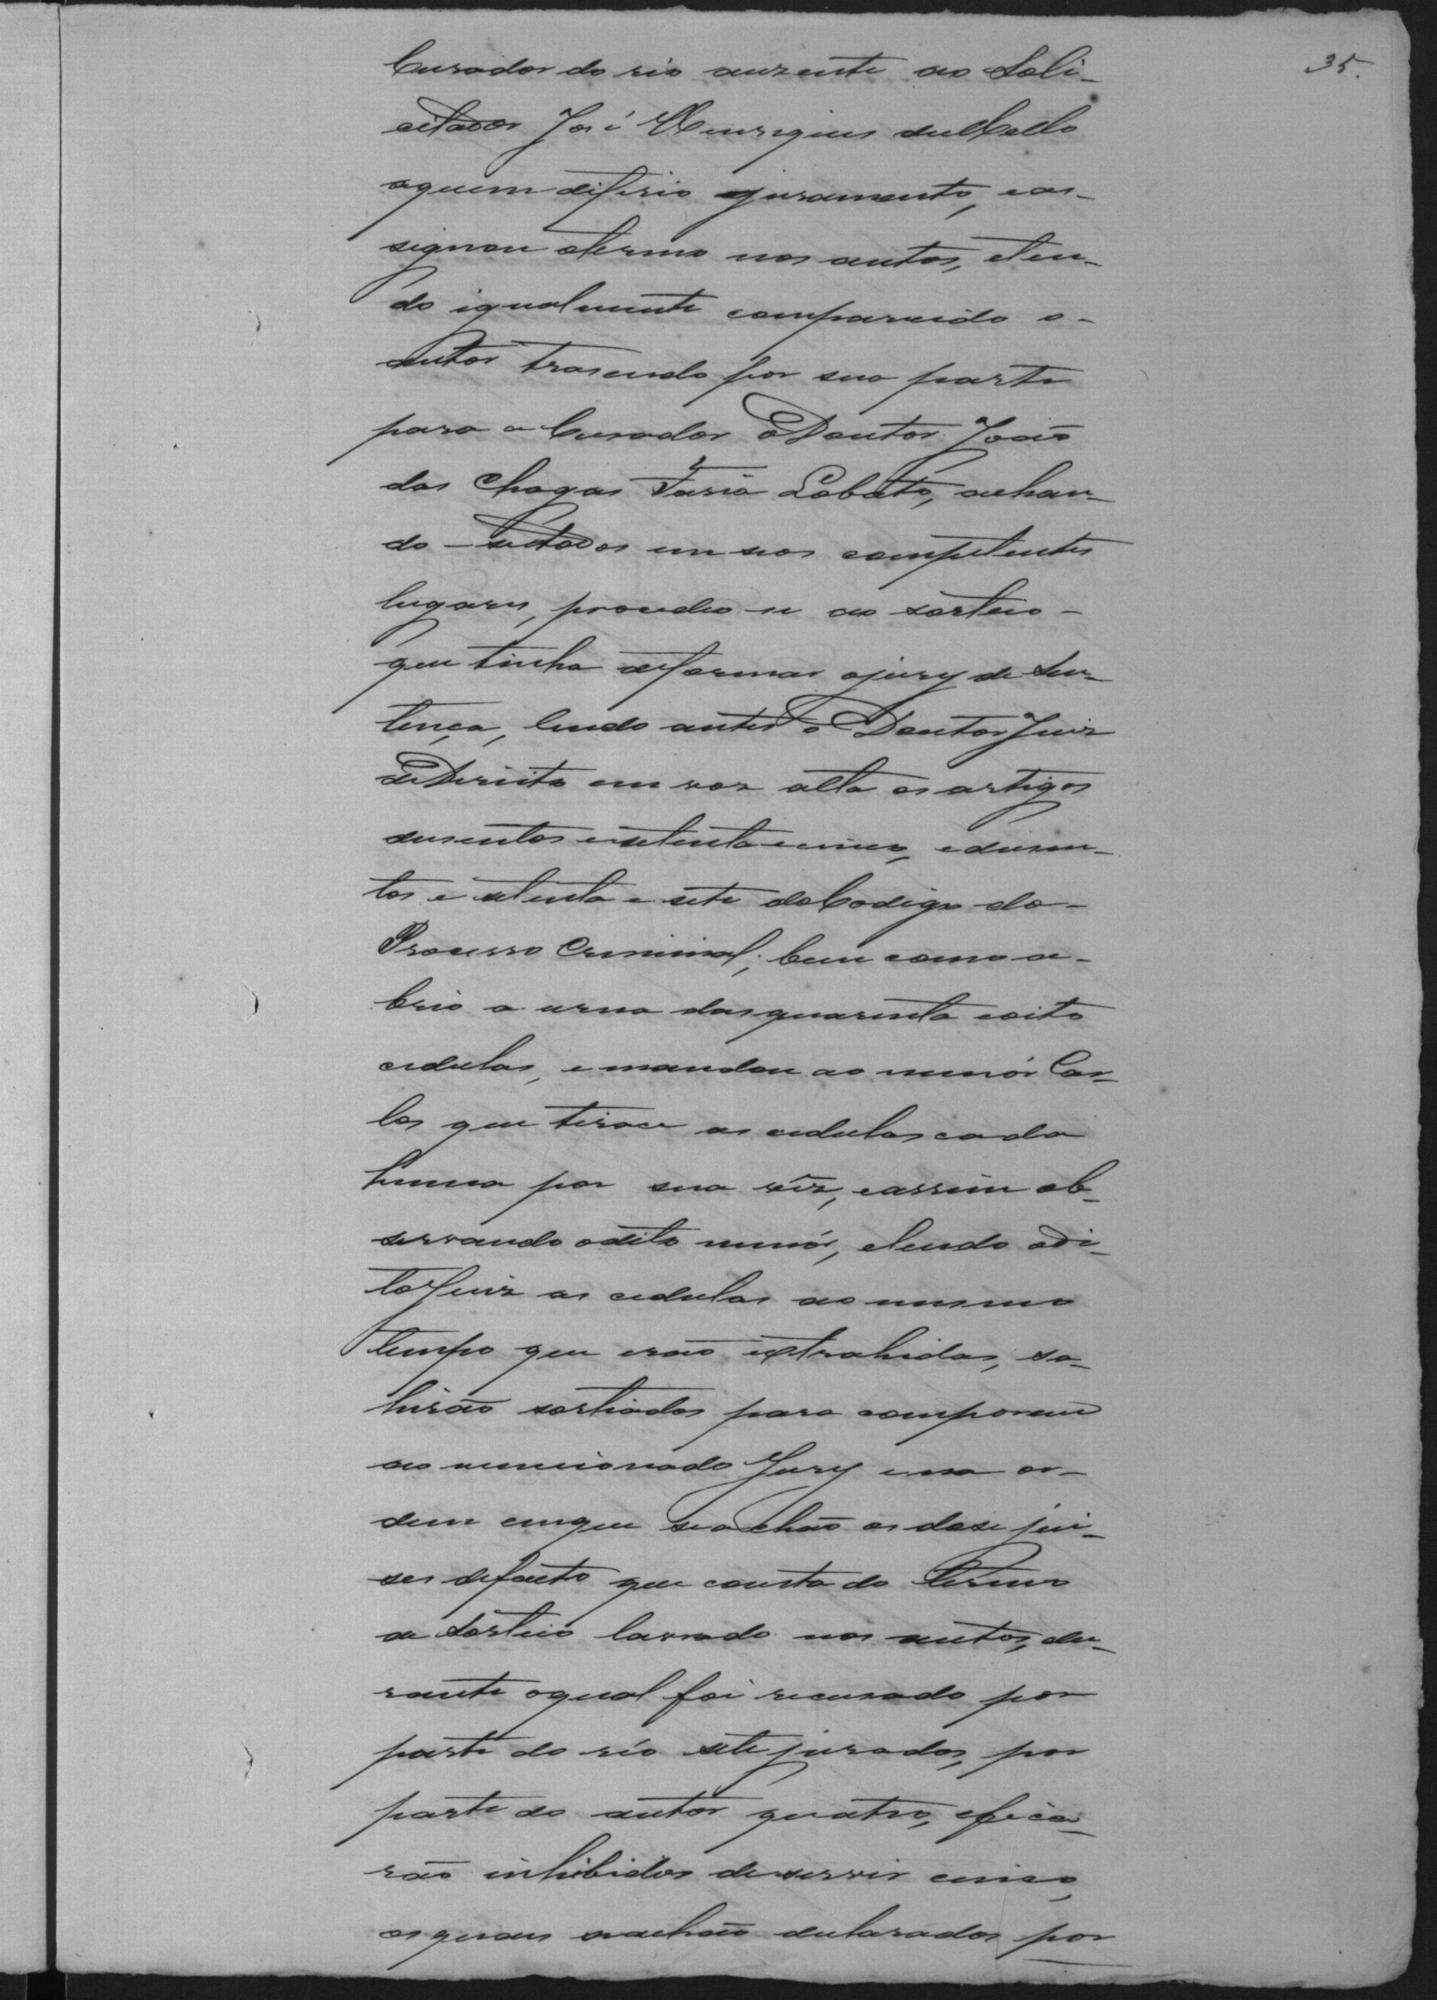 35.
Curador do réo auzente ao Soli-
citador José Henriques de Mello
aquem diferio juramento, e as-
signou otermo nos autos, eten-
do igualmente comparecido o-
autor trasendo por sua parte
para a Curador o Doutor João
das Chagas Faria Lobato, achan-
do-se todos em seos competentes
lugares, procedeo-se ao sorteio-
que tinha deformar ojury de Sen-
tença, lendo antes o Doutor Juiz
deDireito em voz alta os artigos
dusentos esetenta ecinco, edusen-
tos e setenta e sete doCodigo do-
Processo Criminal; bem como a-
brio a urna das quarenta eoito
cedulas, e mandou ao menór Car-
los que tirace as cedulas cada
huma por sua vêz, eassim ob-
servando odito menór, elendo odi-
to Juiz as cedulas ao mesmo
tempo que erão extrahidas, sa-
hirão sortiados para comporem
ao mencionado Jury e na or-
dem emque se achão os dose jui-
ses defacto que consta do termo
de Sorteio lavrado nos autos, du-
rante oqual foi recusado por
parte do réo sete jurados, por
parte do autor quatro, efica-
rão inhibidos deservir cinco,
osquaes seachão declarados por